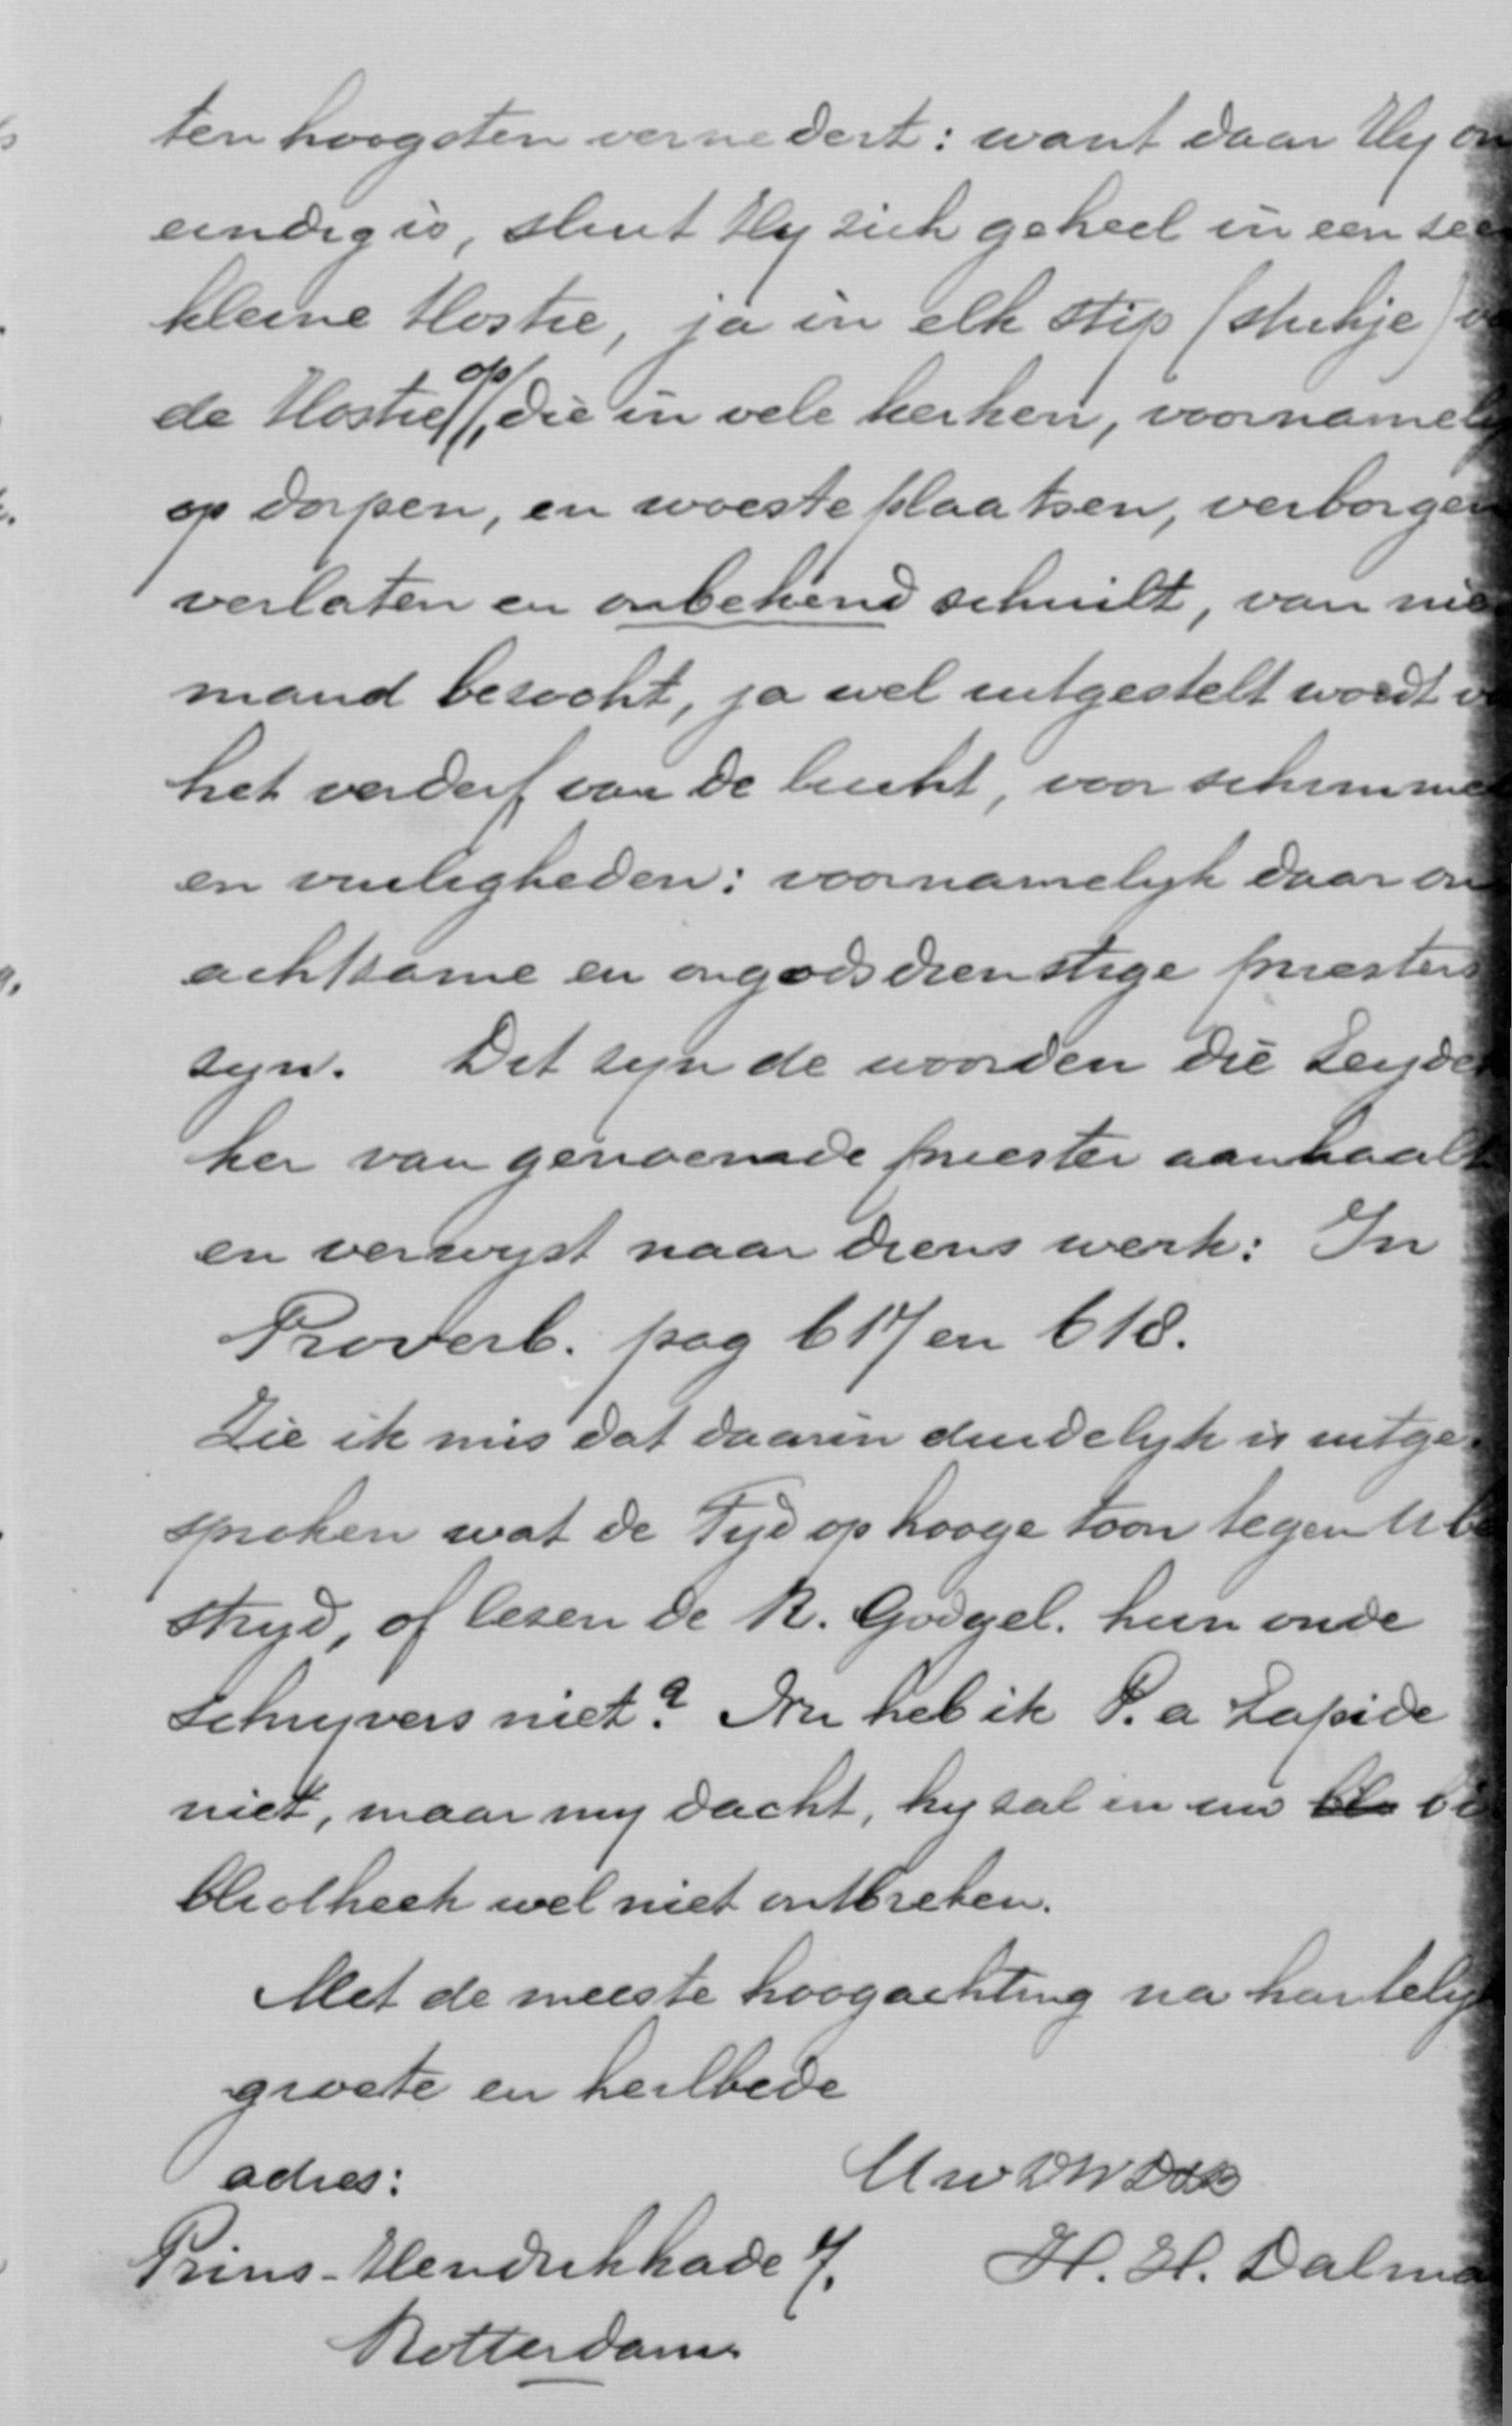 ten hoogsten vernedert: want daar Hy on
eindig is, sluit Hy zich geheel in een see
kleine Hostie, ja in elk stip (stukje) v
de Hostie op, die in vele kerken, voornamely
op dorpen, en woeste plaatsen, verborgen
verlaten en onbekend schuilt, van nie
mand besocht, ja wel uitgestelt wordt v
het verderf van de lucht, voor schimme
en vuiligheden: voornamelyk daar on
achtsame en ongodsdienstige priesters
syn. Dit syn de woorden die Leyde
ker van genoemde priester aanhaalt
en verwyst naar diens werk: In
Proverb. pag 617 en 618.
Zie ik mis dat daarin duidelyk is uitge-
sproken wat de Tyd op hooge toon tegen U be
stryd, of lesen de R. Godgel. hun oude
schryvers niet? Nu heb ik P. a Lapide
niet, maar my dacht, hy sal in uw bi
bliotheek wel niet ontbreken.
Met de meeste hoogachting na hartelyk
groete en heilbede
adres: Uw
Prins-Hendrikkade 7. H. H. Dalma
Rotterdam